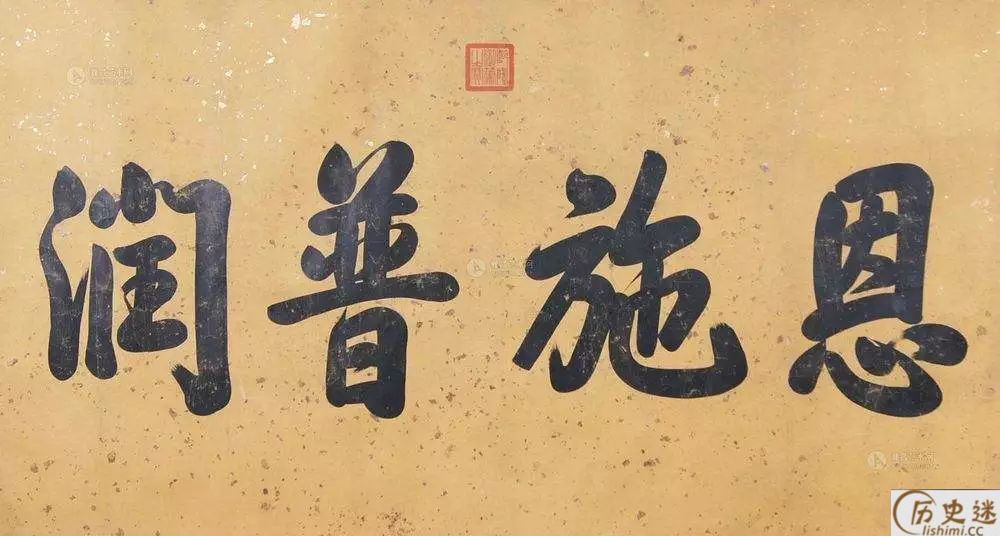 恩施普润
历史迷
lishimi.cc